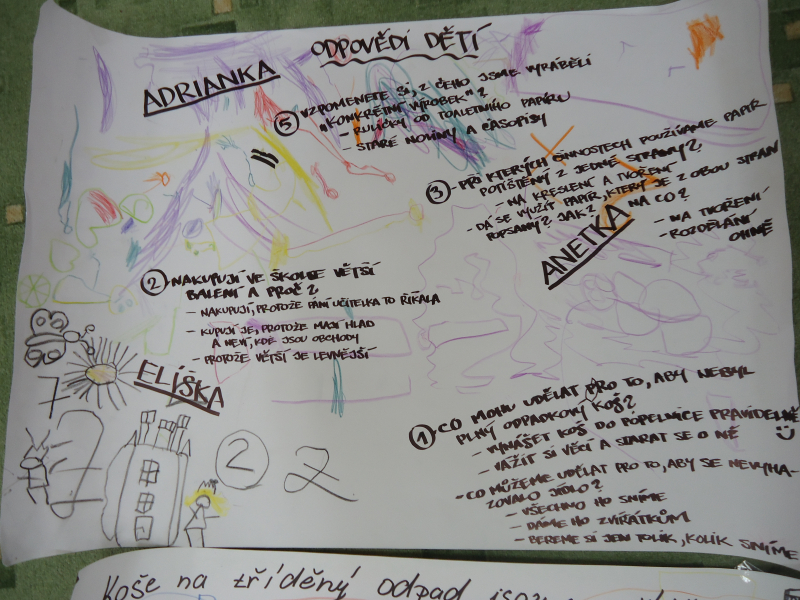 ODPOVĚDÍ DĚTÍ
ADRIANKA
5 VZPOMENETE SI, Z ČEHO JSME VYRÁBĚLI
„KONKRÉTNÍ VÝROBEK"?
- RULIČKY OD TOALETNÍHO PAPÍRU
- STARÉ NOVINY A ČASOPISY
3 - PŘI KTERÝCH ČINNOSTECH POUŽÍVÁME PAPÍR
POTIŠTĚNÝ Z JEDNÉ STRANY?
- NA KRESLENÍ A TVOŘENÍ
- DÁ SE VYUŽÍT PAPÍR, KTERÝ JE Z OBOU STRAN
POPSANÝ? JAK? NA CO?
- NA TVOŘENÍ
- ROZDĚLÁNÍ
OHNĚ
ANETKA
2 NAKUPUJÍ VE ŠKOLCE VĚTŠÍ
BALENÍ A PROČ?
- NAKUPUJÍ, PROTOŽE PANÍ UČITELKA TO ŘÍKALA
- KUPUJÍ JE, PROTOŽE MAJÍ HLAD
A NEVÍ, KDE JSOU OBCHODY
- PROTOŽE VĚTŠÍ JE LEVNĚJŠÍ
ELIŠKA
7
2 2
1 CO MOHU UDĚLAT PRO TO, ABY NEBYL
PLNÝ ODPADKOVÝ KOŠ?
- VYNÁŠET KOŠ DO POPELNICE PRAVIDELNĚ
- VÁŽIT SI VĚCÍ A STARAT SE O NĚ
- CO MŮŽEME UDĚLAT PRO TO, ABY SE NEVYHA-
ZOVALO JÍDLO?
- VŠECHNO HO SNÍME
- DÁME HO ZVÍŘÁTKŮM
- BEREME SI JEN TOLIK, KOLIK SNÍME
Koše na tříděný odpad